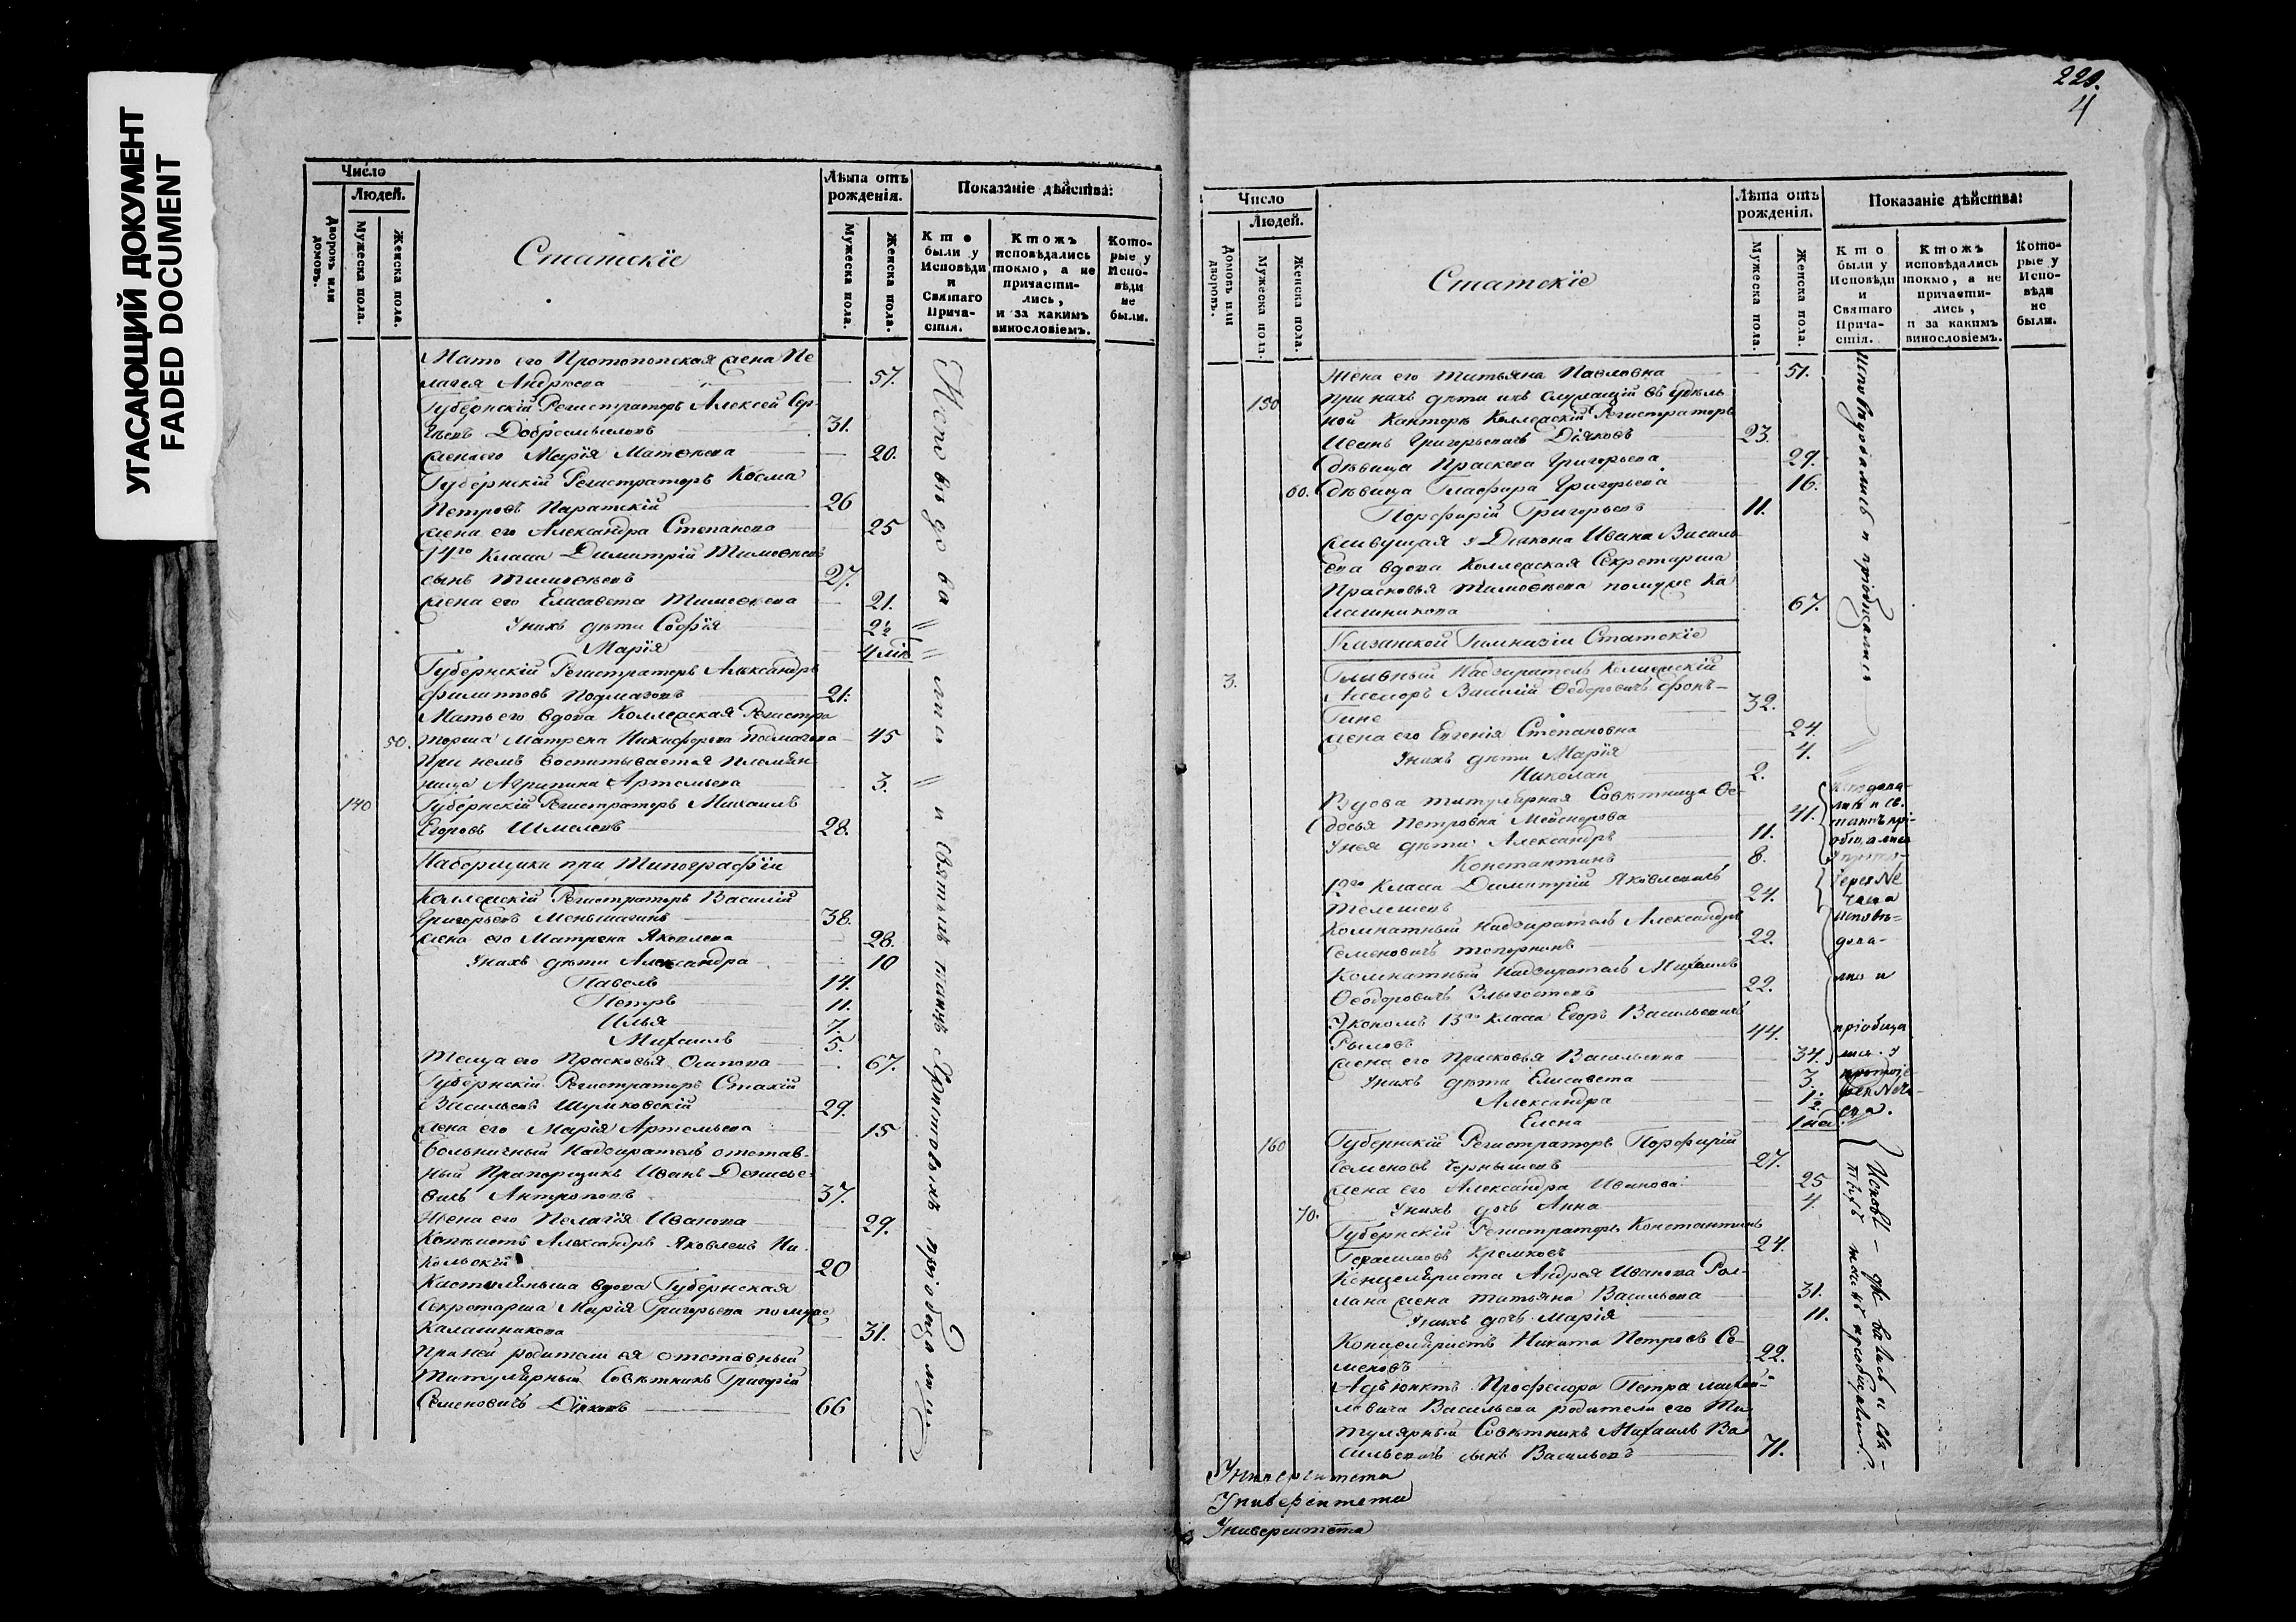 УГАСАЮЩИЙ ДОКУМЕНТ
FADED DOCUMENT
Число
Людей.
Дворовъ или домовъ.
Мужеска пола.
Женска пола.
Статскіе
Лѣта отъ рожденія.
Мужеска пола.
Женска пола.
Показаніе дѣйства:
Кто были у Исповѣди и Святаго Прича-стія.
Ктожъ исповѣдались токмо, а не причасти-лись, и за какимъ винословіемъ.
Кото-рые у Испо-вѣди не были.
Мать его Протопопская жена Пе
лагея Андреева 57.
Губернскій Регистраторъ Алексей Сер-
гѣевъ Добросмысловъ 31.
жена его Марія Матвѣева 20.
Губернскій Регистраторъ Косма
Петровъ Паратскій 26
жена его Александра Степанова 25
14го класса Димитрій Тимоѳеевъ
сынъ Тимоѳеевъ 27.
жена его Елисавета Тимоѳеева 21.
У нихъ дѣти Софія 2½
Марія
Губернскій Регистраторъ Александръ
Филиповъ Подмазовъ 21.
Мать его вдова Коллежская Регистра
50. торша Матрена Никифорова Подмазова 45
При немъ воспитывается племян
ница Агрипина Артемьева 3.
140 Губернскій Регистраторъ Михаилъ
Егоровъ Шмелевъ 28.
Наборщики при Типографіи
Коллежскій Регистраторъ Василій
Григорьевъ Меньшагинъ 38.
жена его Матрена Яковлева 28.
У нихъ дѣти Александра 10
Павелъ 14.
Петръ 11.
Илья 7.
Михаилъ 5.
Теща его Прасковья Осипова 67.
Губернскій Регистраторъ Стахій
Васильевъ Шумковскій 29.
жена его Марія Артемьева 15
Больничный Надзиратель отстав-
ный Прапорщикъ Иванъ Денисье-
вичъ Антроповъ 37.
Жена его Пелагія Иванова 29.
Копіистъ Александръ Яковлевъ Ни
кольскій 20
Кастелянша вдова Губернская
Секретарша Марія Григорьева по мужѣ
Калашникова 31.
При ней родители ея отставный
Титулярный Совѣтникъ Григорій
Семеновичъ Дьяковъ 66
Исповѣдовались и Святыхъ таинъ Христовыхъ пріобщались
220.
4
Число
Людей.
Домовъ или дворовъ.
Мужеска пола.
Женска пола.
Статскіе
Лѣта отъ рожденія.
Мужеска пола.
Женска пола.
Показаніе дѣйства:
Кто были у Исповѣди и Святаго Прича-стія.
Ктожъ исповѣдались токмо, а не причасти-лись, и за какимъ винословіемъ.
Кото-рые у Испо-вѣди не были.
Жена его Татьяна Павловна 51.
150 При нихъ дѣти ихъ служащій въ Удѣль
ной Канторѣ Коллежскій Регистраторъ
Иванъ Григорьевичъ Дьяковъ 23.
Дѣвица Праскева Григорьева 29.
60. Дѣвица Глафира Григорьева 16.
Порфирій Григорьевъ 11.
живущая у Діакона Ивана Василь
ева вдова Коллежская Секретарша
Прасковья Тимоѳеева по мужѣ Ка
лашникова 67.
Казанской Гимназіи Статскіе
3. Главный Надзиратель Коллежскій
Асессоръ Василій Ѳедоровичъ Фонъ-
Гине 32.
жена его Евгенія Степановна 24.
У нихъ дѣти Марія 4.
Николай 2.
Вдова титулярная Совѣтница Ѳе-
досья Петровна Мейснерова 41.
У нея дѣти Александръ 11.
Константинъ 8.
12го класса Димитрій Яковлевичъ
Телешевъ 24.
Комнатный Надзиратель Александръ
Семеновичъ Топорнинъ 22.
Комнатный Надзиратель Михаилъ
Ѳеодоровичъ Злыгостевъ 22.
Экономъ 13го класса Егоръ Васильевичъ
Рыловъ 44.
жена его Прасковья Васильевна 34.
У нихъ дѣти Елисавета 3.
Александра 1½
Елена
160 Губернскій Регистраторъ Порфирій
Семеновъ Чернышевъ 27.
жена его Александра Иванова 25
70. У нихъ дочь Анна 4.
Губернскій Регистраторъ Константинъ
Герасимовъ Кремковъ 24.
Концеляриста Андрея Иванова Рол-
лана жена Татьяна Васильева 31.
У нихъ дочь Марія 11.
Концеляристъ Никита Петровъ Се-
меновъ 22.
Адъюнктъ Профессора Петра Михай-
ловича Васильева родители его Ти
тулярный Совѣтникъ Михаилъ Ва
сильевичъ сынъ Васильевъ 71.
Исповѣдовались и пріобщались
Университета
Университета
Университета